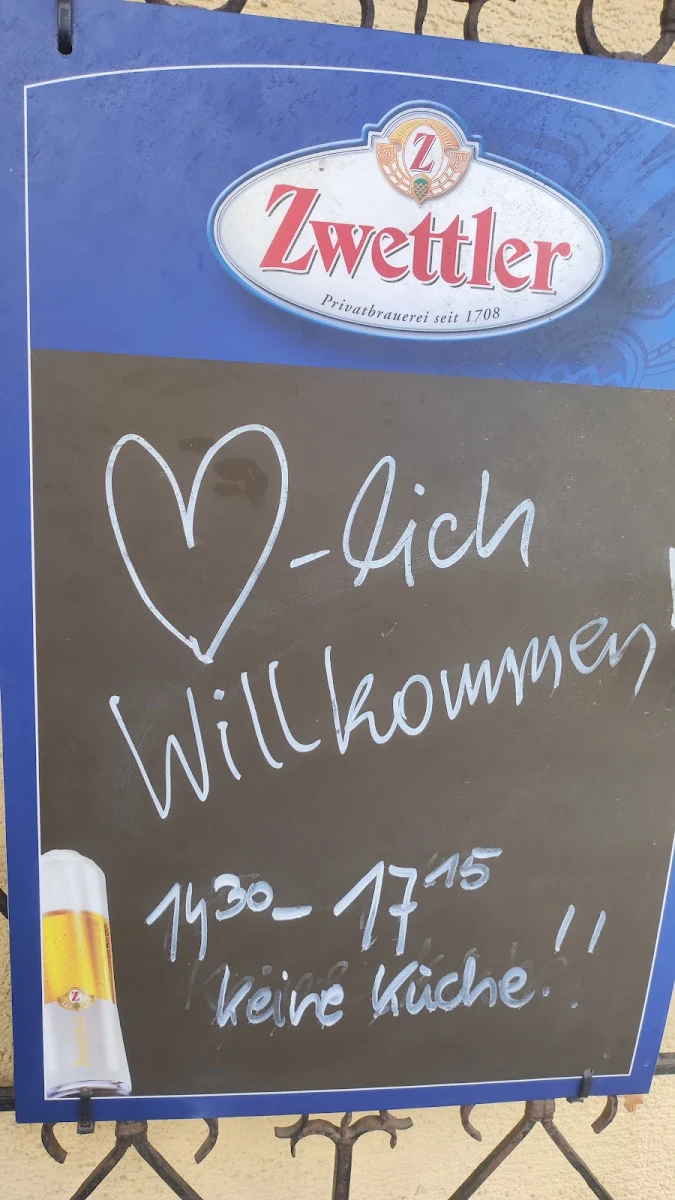 Z
Zwettler
Privatbrauerei seit 1708
♡-lich
Willkommen
14³⁰ - 17¹⁵
keine Küche!!
Z